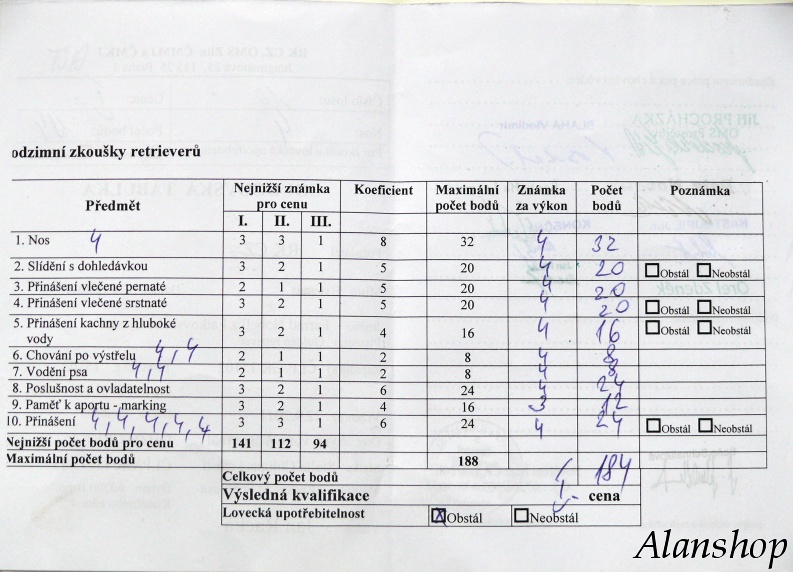 odzimní zkoušky retrieverů
Předmět Nejnižší známka pro cenu Koeficient Maximální počet bodů Známka za výkon Počet bodů Poznámka
I. II. III.
1. Nos 4 3 3 1 8 32 4 32
2. Slídění s dohledávkou 3 2 1 5 20 4 20 Obstál Neobstál
3. Přinášení vlečené pernaté 2 1 1 5 20 4 20
4. Přinášení vlečené srstnaté 3 2 1 5 20 4 20 Obstál Neobstál
5. Přinášení kachny z hluboké vody 3 2 1 4 16 4 16 Obstál Neobstál
6. Chování po výstřelu 4, 4 2 1 1 2 8 4 8
7. Vodění psa 4, 4 2 1 1 2 8 4 8
8. Poslušnost a ovladatelnost 3 2 1 6 24 4 24
9. Paměť k aportu - marking 3 2 1 4 16 3 12
10. Přinášení 4, 4, 4, 4, 4 3 3 1 6 24 4 24 Obstál Neobstál
Nejnižší počet bodů pro cenu 141 112 94
Maximální počet bodů 188
Celkový počet bodů 184
Výsledná kvalifikace I. cena
Lovecká upotřebitelnost X Obstál Neobstál
Alanshop